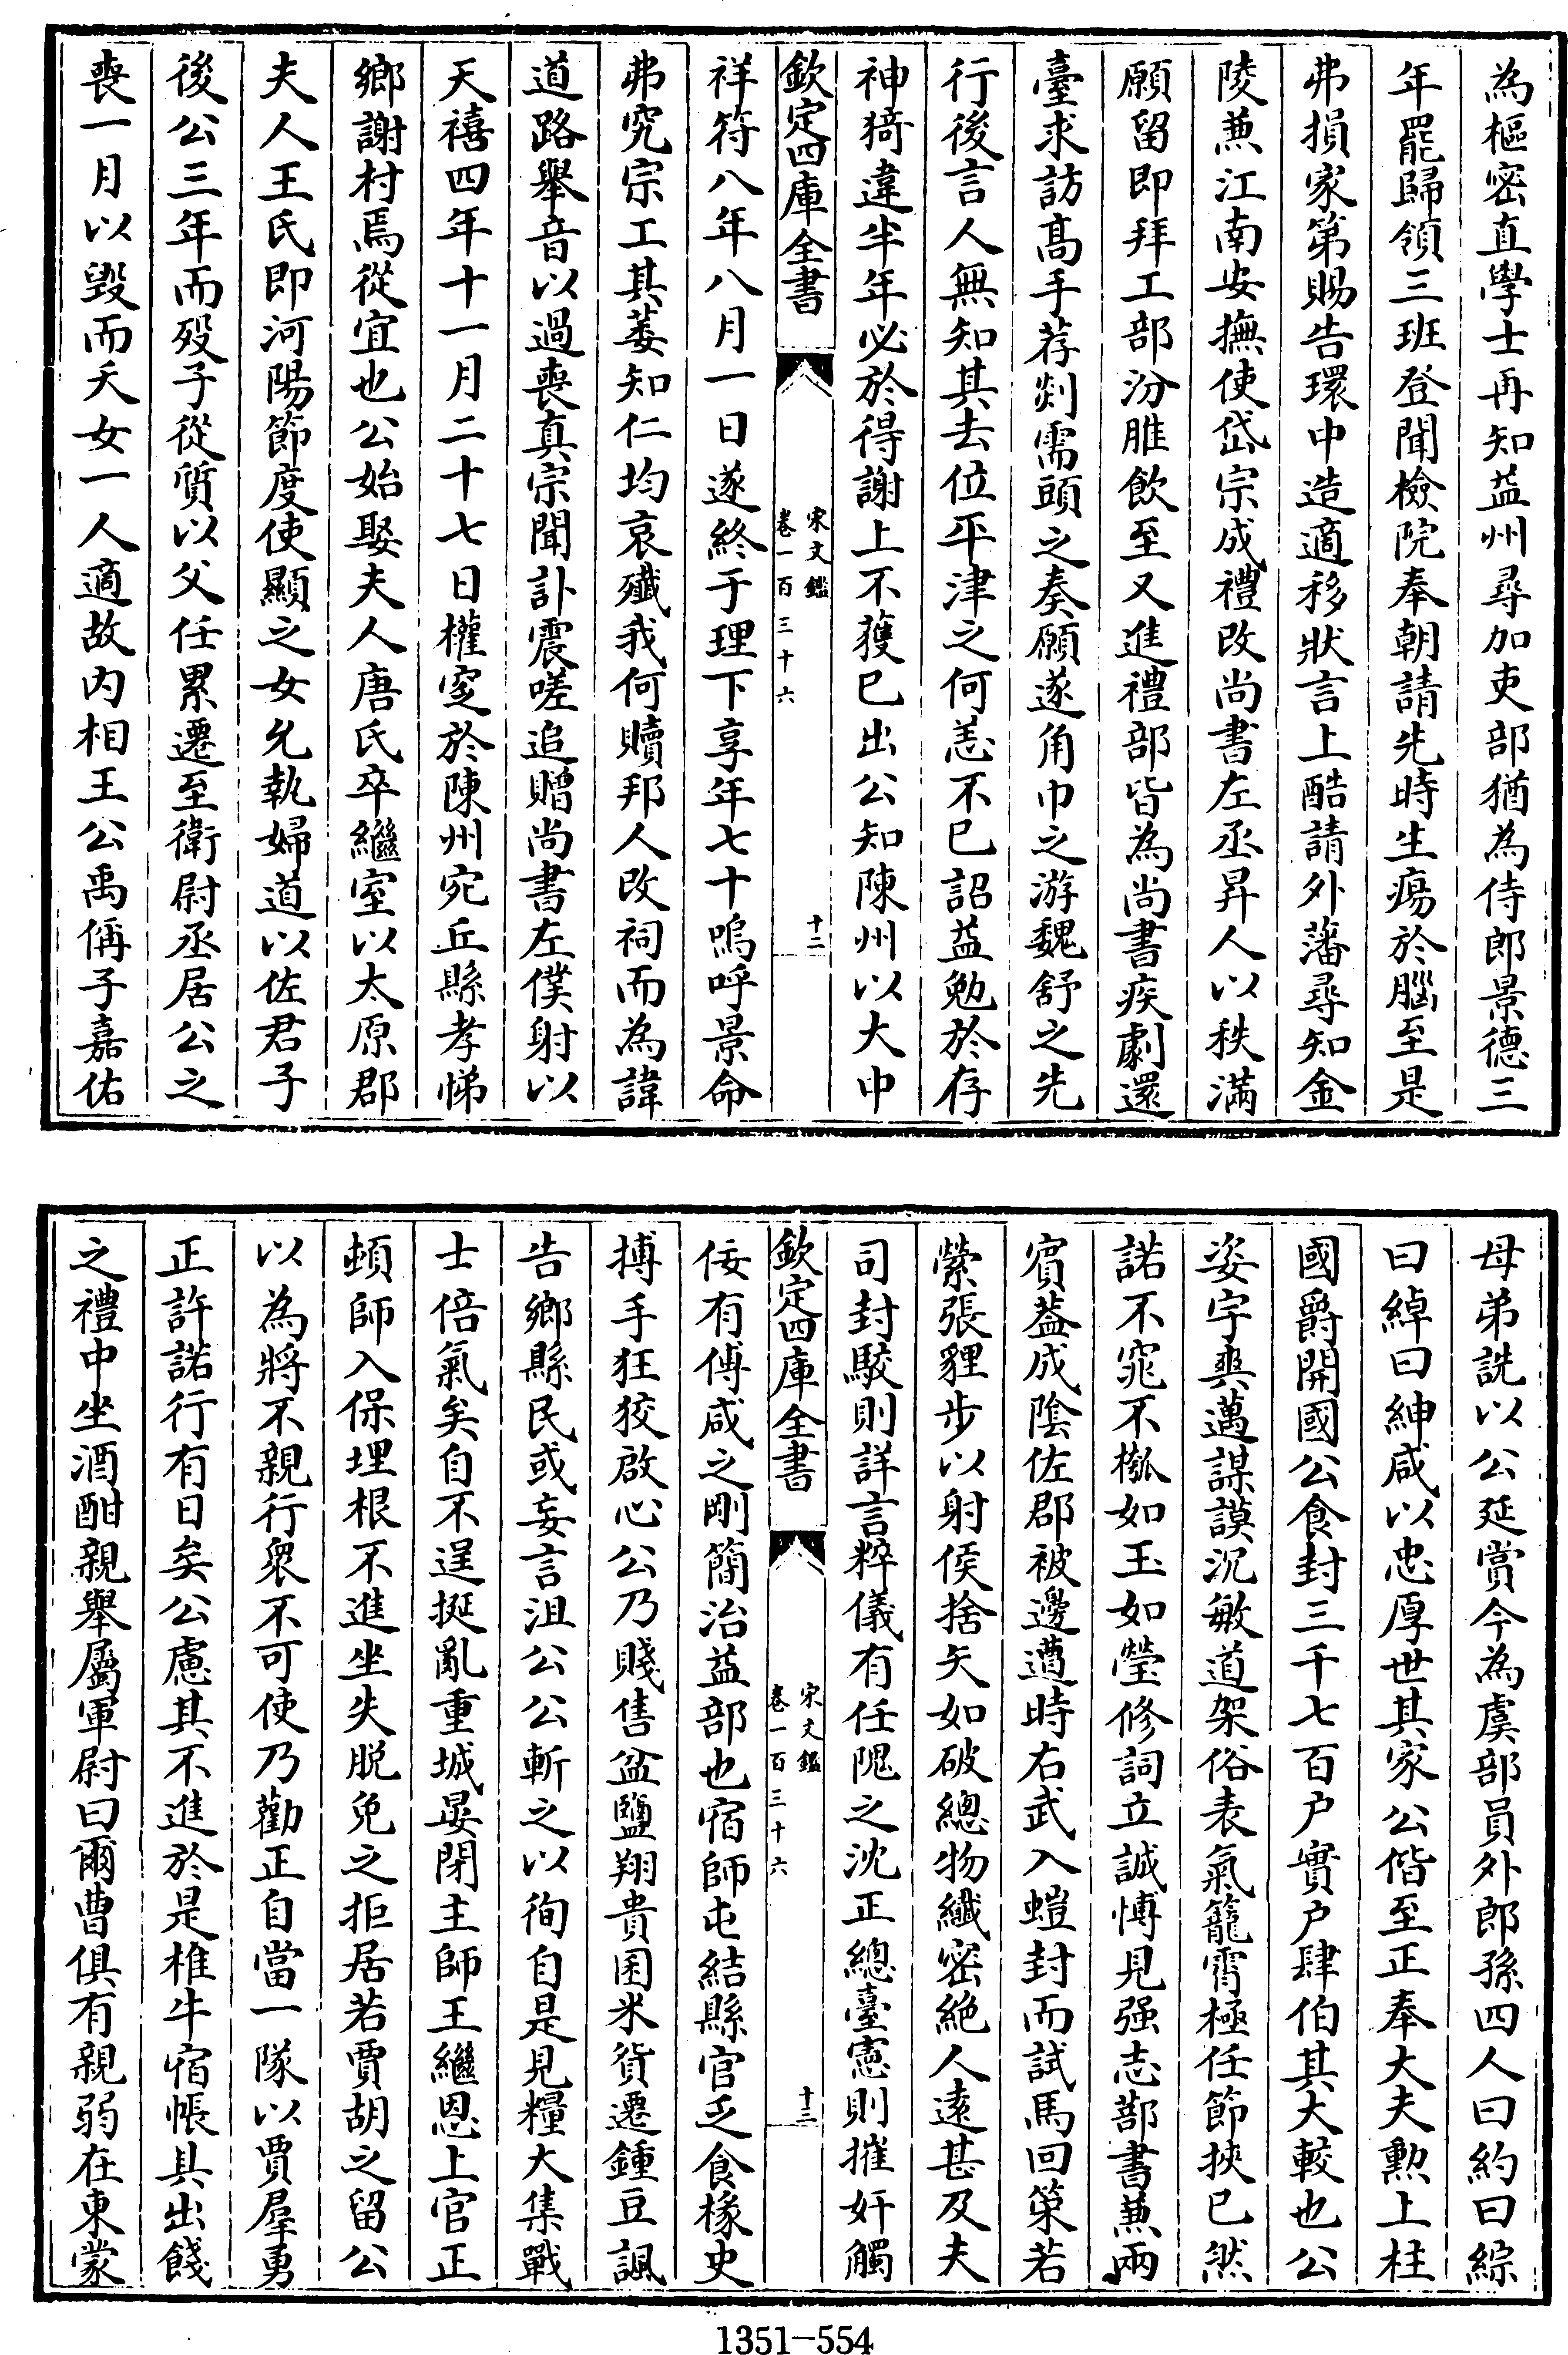 為樞密直學士再知益州尋加吏部猶為侍郎景德三
年罷歸領三班登聞檢院奉朝請先時生瘍於腦至是
弗損家第賜告環中造適移狀言上酷請外藩尋知金
陵兼江南安撫使岱宗成禮改尚書左丞昇人以秩滿
願留即拜工部汾脽飲至又進禮部皆為尚書疾劇還
臺求訪髙手荐剡需頭之奏願遂角巾之游魏舒之先
行後言人無知其去位平津之何恙不已詔益勉於存
神猗違半年必於得謝上不獲已出公知陳州以大中
欽定四庫全書
宋文鑑
卷一百三十六
十二
祥符八年八月一日遂終于理下享年七十嗚呼景命
弗究宗工其萎知仁均哀殲我何贖邦人改祠而為諱
道路舉音以過喪真宗聞訃震嗟追贈尚書左僕射以
天禧四年十一月二十七日權窆於陳州宛丘縣孝悌
鄉謝村焉從宜也公始娶夫人唐氏卒繼室以太原郡
夫人王氏即河陽節度使顯之女允執婦道以佐君子
後公三年而歿子從質以父任累遷至衛尉丞居公之
喪一月以毁而夭女一人適故内相王公禹偁子嘉佑
母弟詵以公延賞今為虞部員外郎孫四人曰約曰綜
曰綽曰紳咸以忠厚世其家公偕至正奉大夫勲上柱
國爵開國公食封三千七百户實户肆伯其大較也公
姿宇爽邁謀謨沉敏道架俗表氣籠霄極任節挾已然
諾不窕不槬如玉如瑩修詞立誠愽見强志蔀書兼兩
賔葢成陰佐郡被邊遭時右武入螘封而試馬回策若
縈張貍步以射侯捨矢如破總物纎密絶人遠甚及夫
司封駮則詳言粹儀有任隗之沈正總臺憲則摧奸觸
欽定四庫全書
宋文鑑
卷一百三十六
十三
佞有傅咸之剛簡治益部也宿師屯結縣官乏食椽史
搏手狂狡啟心公乃賤售盆鹽翔貴囷米貨遷鍾豆諷
告鄉縣民或妄言沮公公斬之以徇自是見糧大集戰
士倍氣矣自不逞挻亂重城晏閉主師王繼恩上官正
頓師入保埋根不進坐失脱兔之拒居若賈胡之留公
以為將不親行衆不可使乃勸正自當一隊以賈羣勇
正許諾行有日矣公慮其不進於是椎牛宿帳具出餞
之禮中坐酒酣親舉屬軍尉曰爾曹俱有親弱在東蒙
1351-554